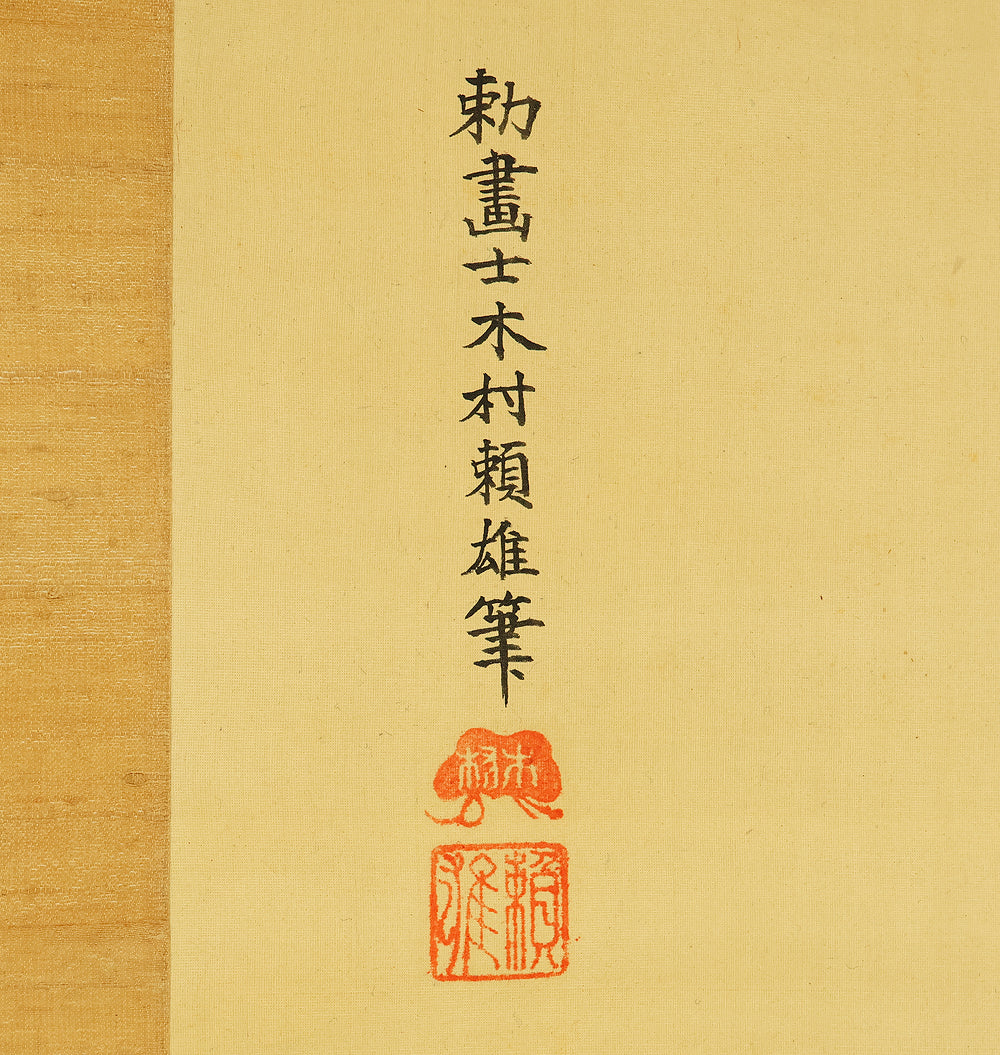 勅畫士木村頼雄筆
木村
頼雄